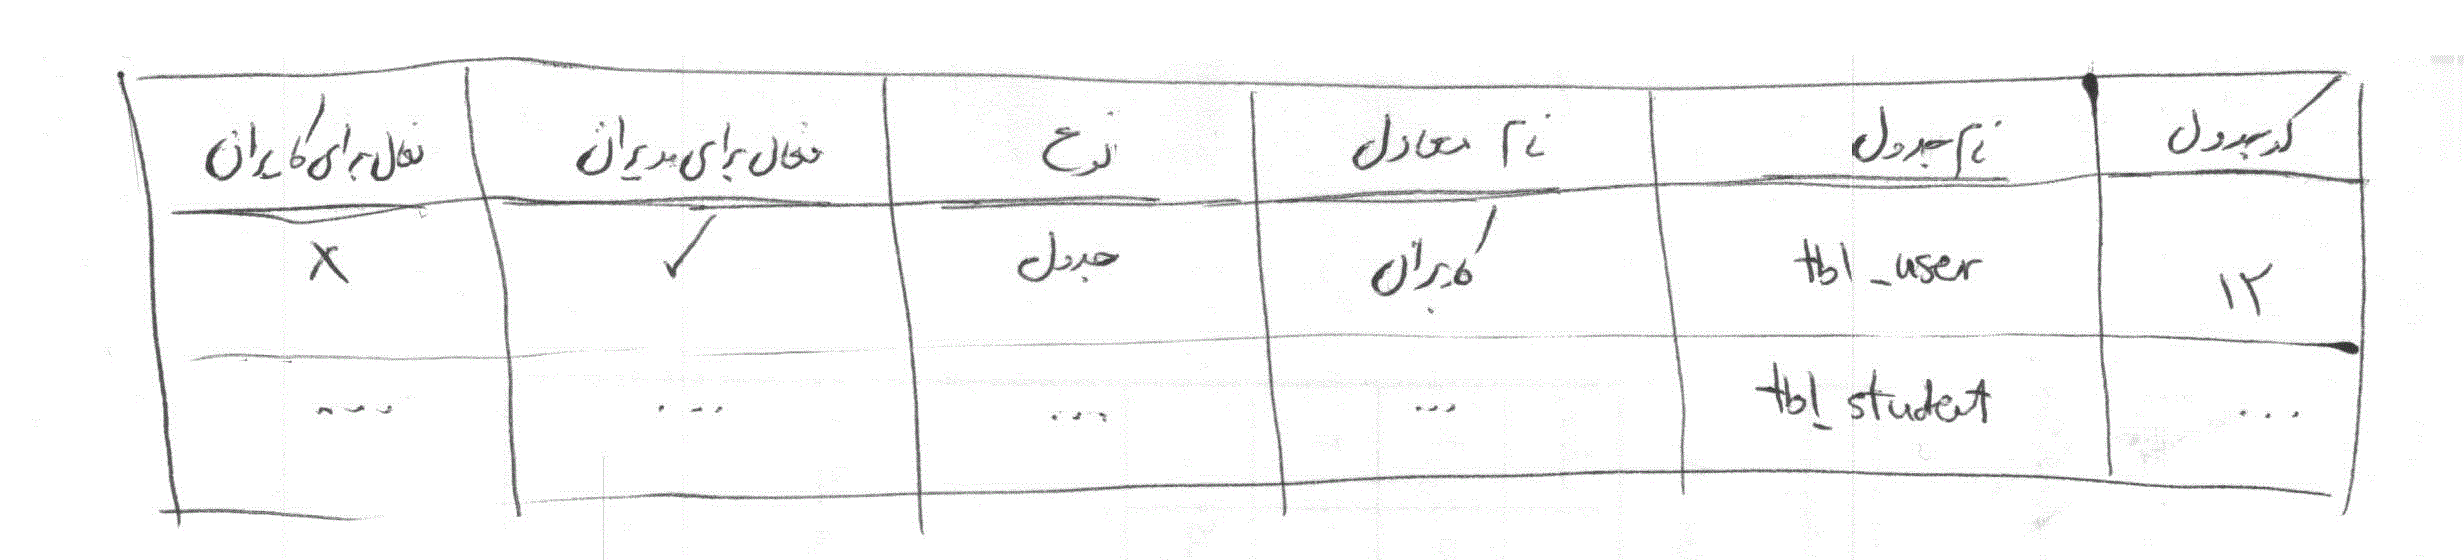 کد جدول	نام جدول	نام معادل	نوع	فعال برای مدیران	فعال برای کاربران
۱۲	tbl_user	کاربران	جدول	✓	X
...	tbl_student	...	...	...	...